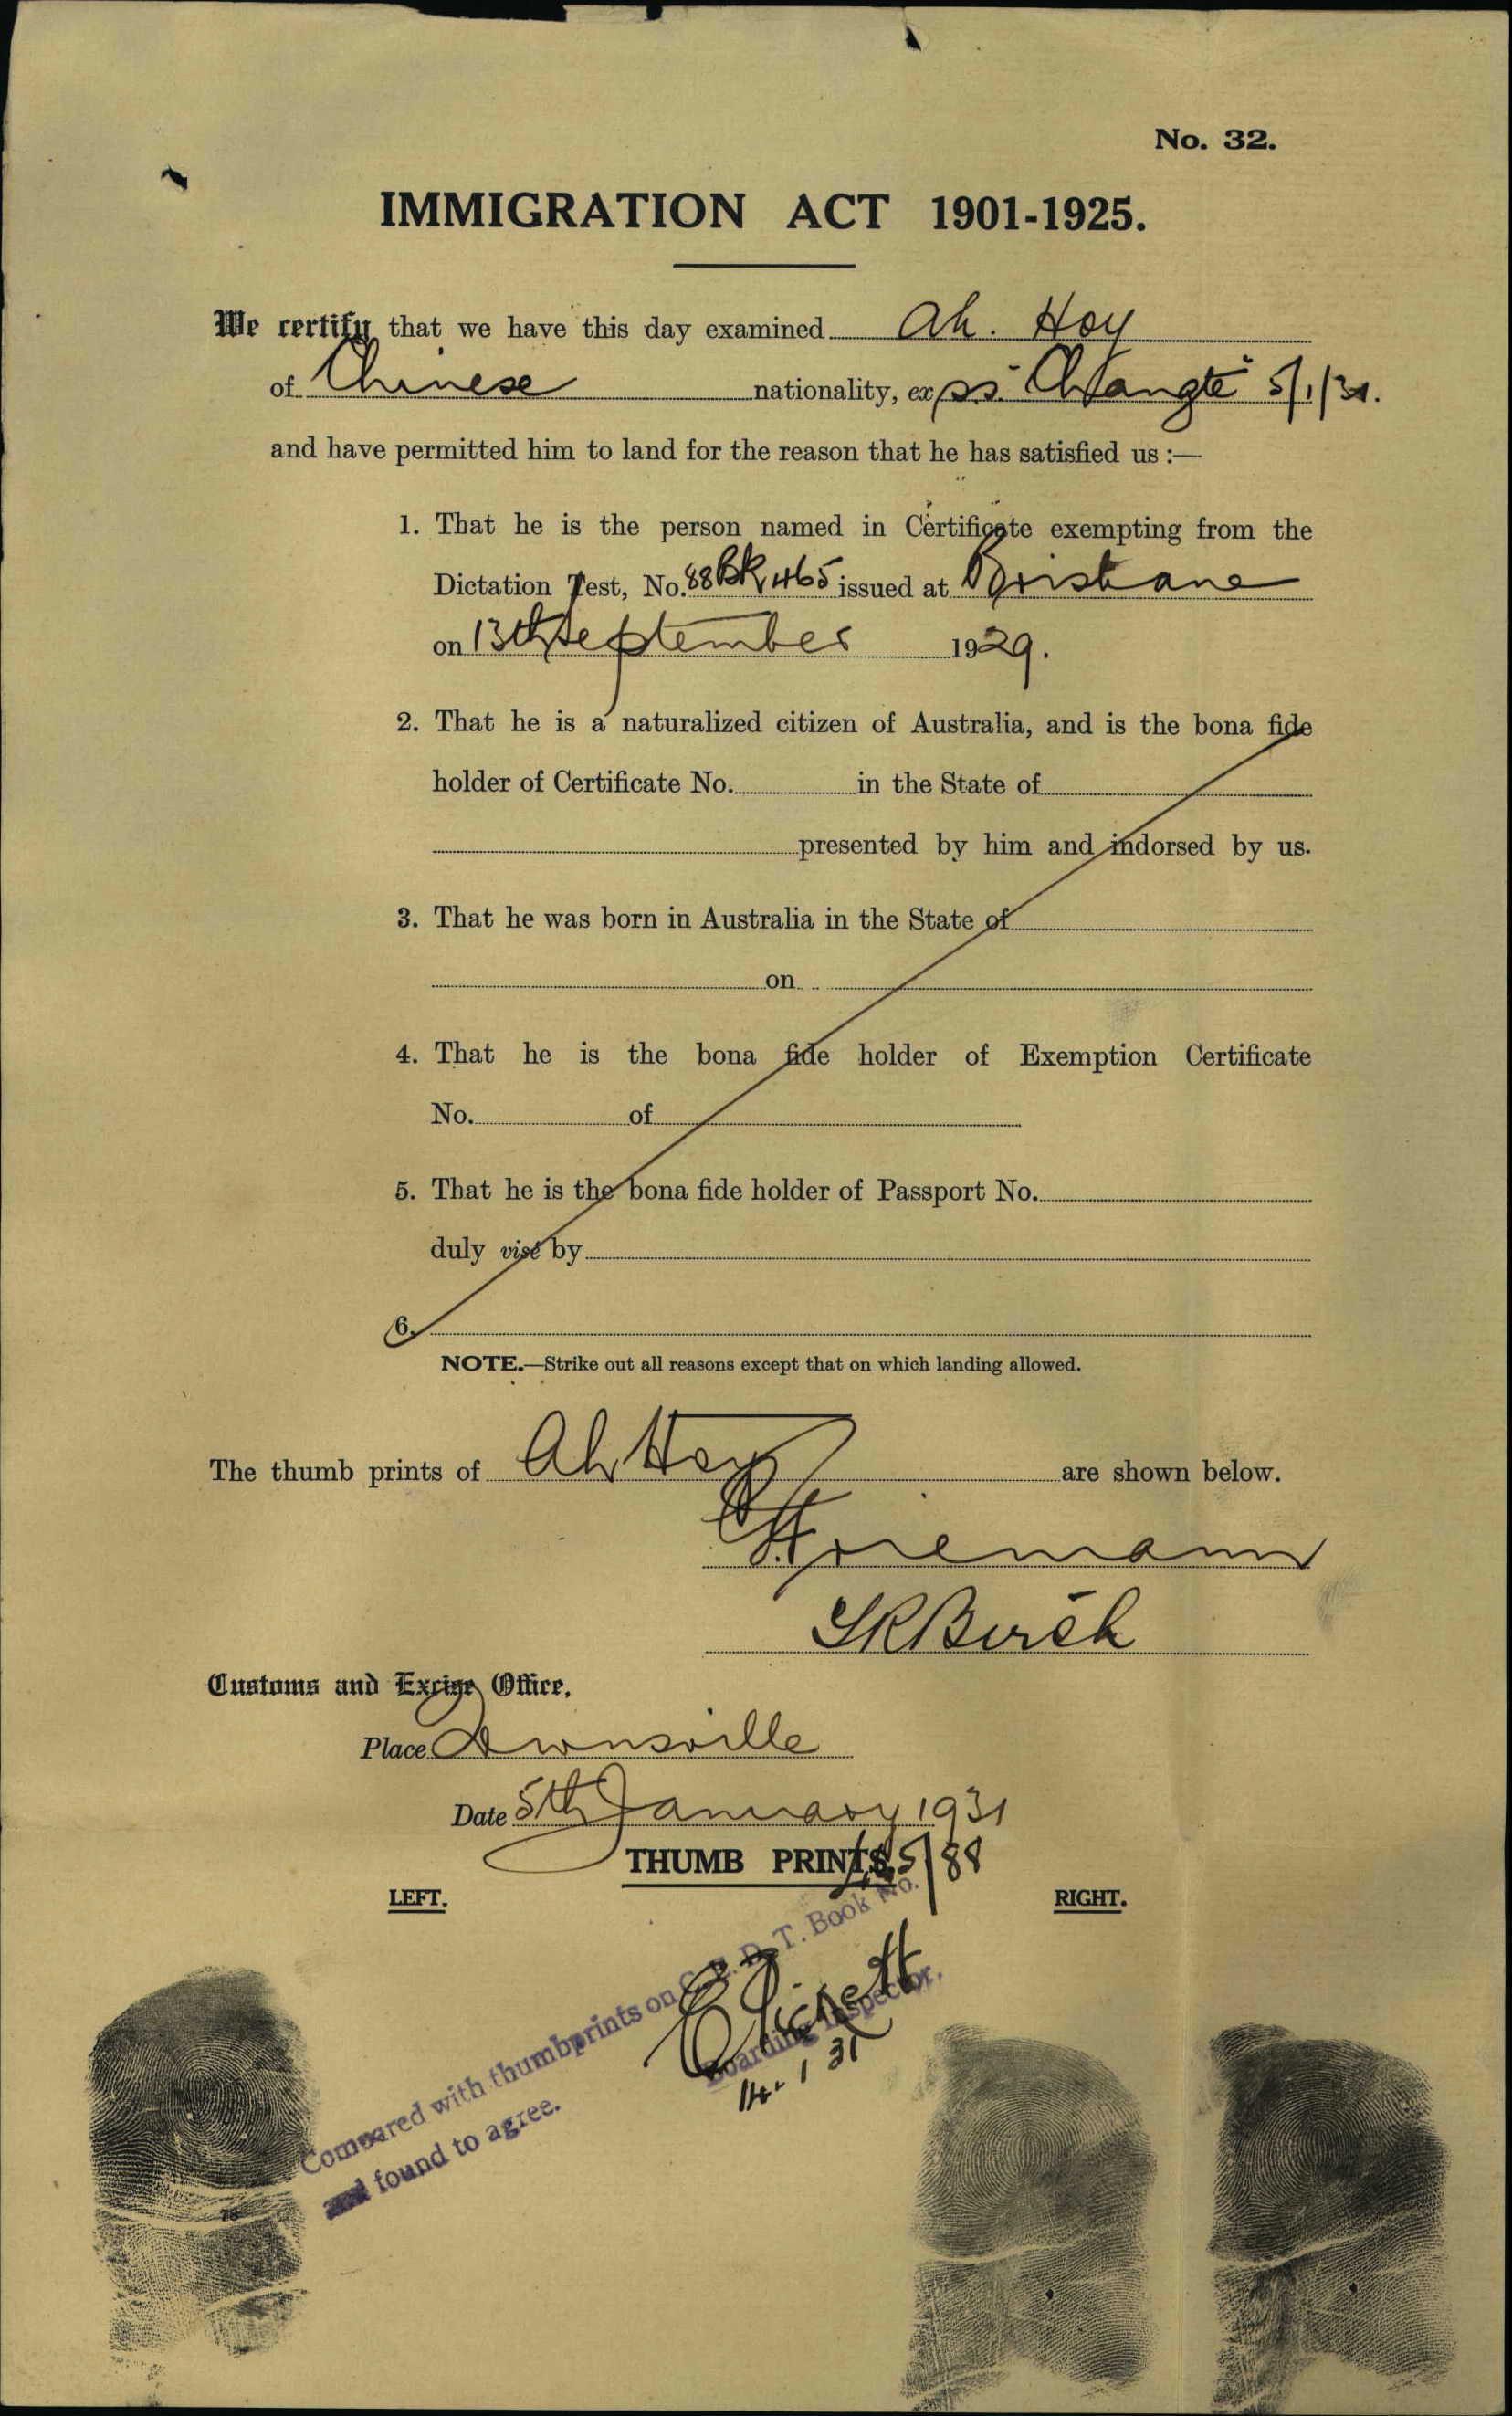 No. 32.
IMMIGRATION ACT 1901-1925.
We certify that we have this day examined Ah. Hoy
of Chinese nationality, ex ss. "Changte" 5/1/31.
and have permitted him to land for the reason that he has satisfied us :—
1. That he is the person named in Certificate exempting from the
Dictation Test, No. 465 issued at Brisbane
on 13th September 1929.
2. That he is a naturalized citizen of Australia, and is the bona fide
holder of Certificate No. in the State of
presented by him and indorsed by us.
3. That he was born in Australia in the State of
on
4. That he is the bona fide holder of Exemption Certificate
No. of
5. That he is the bona fide holder of Passport No.
duly visé by
6.
NOTE.—Strike out all reasons except that on which landing allowed.
The thumb prints of Ah Hoy are shown below.
Customs and Excise Office.
Place Townsville
Date 5th January 1931
THUMB PRINTS /88
LEFT. RIGHT.
Compared with thumbprints on C. E. D. T. Book No.
and found to agree.
Boarding Inspector.
14. 1 31
78